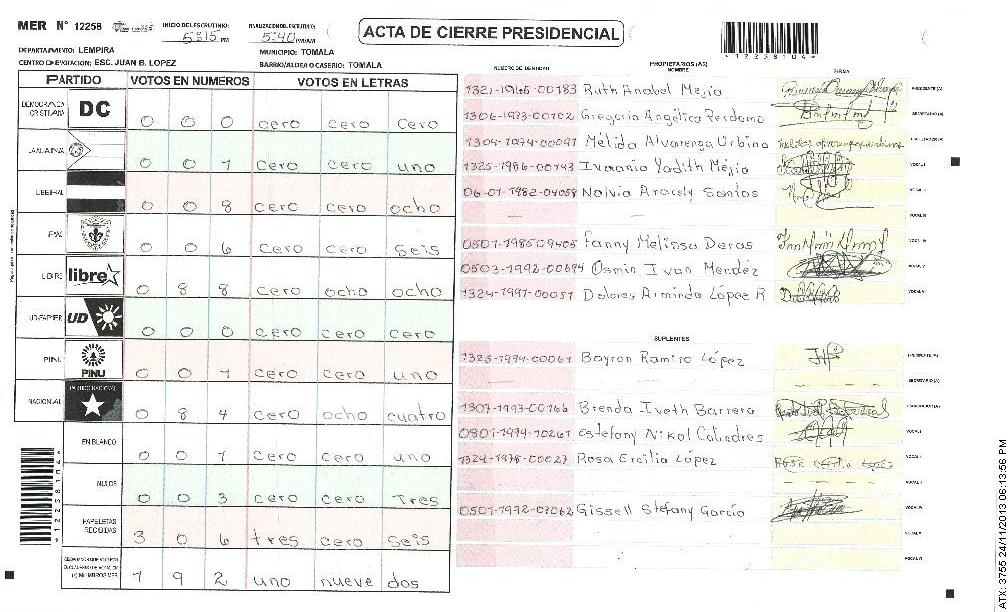 MER N° 12258
INICIO DEL ESCRUTINIO: 5:15 PM
FINALIZACION DEL ESCRUTINIO: 5:40 PM/AM
ACTA DE CIERRE PRESIDENCIAL
*12258104*
DEPARTAMENTO: LEMPIRA
MUNICIPIO: TOMALA
CENTRO DE VOTACION: ESC. JUAN B. LOPEZ
BARRIO/ALDEA O CASERIO: TOMALA
PARTIDO VOTOS EN NUMEROS VOTOS EN LETRAS
DEMOCRACIA CRISTIANA DC 0 0 0 cero cero cero
0 0 1 cero cero uno
LIBERAL 0 0 8 cero cero ocho
0 0 6 cero cero seis
LIBRE libre 0 8 8 cero ocho ocho
UD-FAPER UD 0 0 0 cero cero cero
PINU PINU 0 0 1 cero cero uno
NACIONAL PARTIDO NACIONAL 0 8 4 cero ocho cuatro
EN BLANCO 0 0 1 cero cero uno
NULOS 0 0 3 cero cero Tres
PAPELETAS RECIBIDAS 3 0 6 tres cero seis
1 9 2 uno nueve dos
NUMERO DE IDENTIDAD PROPIETARIOS (AS) NOMBRE FIRMA
1321-1965-00183 Ruth Anabel Mejia PRESIDENTE (A)
1306-1973-00102 Gregoria Angélica Perdomo SECRETARIO (A)
1304-1974-00097 Mélida Alvarenga Urbina
1325-1986-00143 Yodith Mejia VOCAL I
06-01-1982-04058 Aracely Santos VOCAL II
— — VOCAL III
Fanny Melissa Deras VOCAL IV
0503-1992-00694 Osmin Ivan Mendez VOCAL V
Dolores Armindo López R VOCAL VI
SUPLENTES
1323-1974-00061 Bayron Ramiro López PRESIDENTE (A)
SECRETARIO (A)
1307-1993-00166 Brenda Iveth Barrera
Estefany Nikol VOCAL I
1324-1978-00027 Rosa Ercilia López
Gissell Stefany García
VOCAL V
VOCAL VI
*12258104*
ATX: 3755 24/11/2013 06:13:56 PM